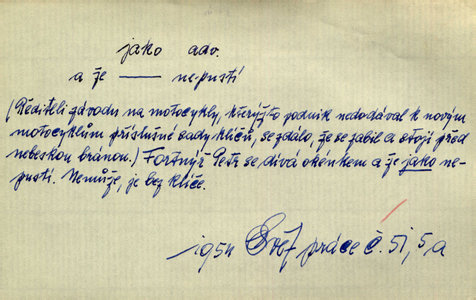 jako adv.
a že —— nepustí
(Řediteli závodu na motocykly, kterýžto podnik nedodával k novým
motocyklům příslušné sady klíčů, se zdálo, že se zabil a stojí před
nebeskou bránou.) Fortnýř Petr se dívá okénkem a že jako ne-
pustí. Nemůže, je bez klíče.
1954 Svět práce č. 51, 5, a